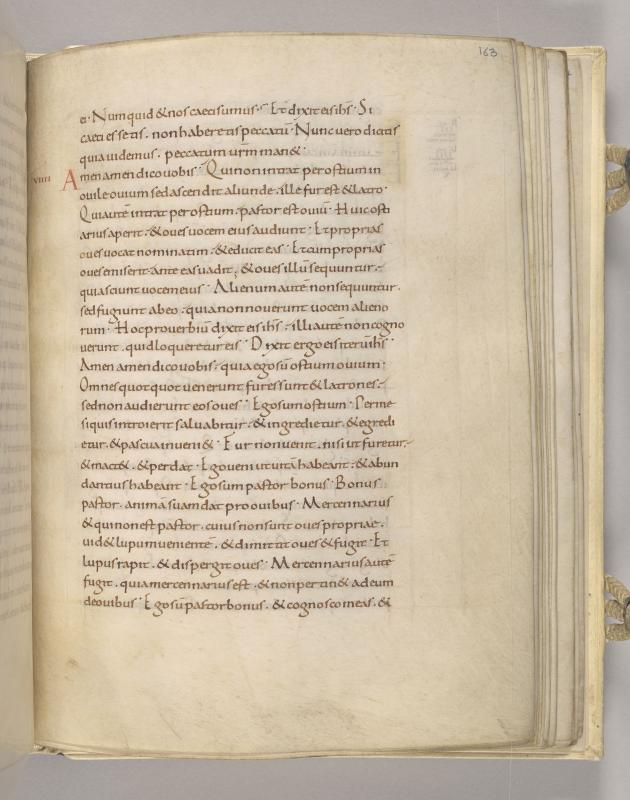 163
ei· Numquid & nos caeci sumus· Et dixit eis ihs̄· Si
caeci essetis· non haberetis peccatū· Nunc uero dicitis
quia uidemus· peccatum ur̄m man&·
viiii Amen amen dico uobis· Qui non intrat per ostium in
ouile ouium sed ascendit aliunde· ille fur est & latro·
Qui autē intrat per ostium· pastor est ouiū· Huic osti
arius aperit· & oues uocem eius audiunt· Et proprias
oues uocat nominatim· & educit eas· Et cum proprias
oues emiserit· ante eas uadit· & oues illū sequuntur·
quia sciunt uocem eius· Alienum autē non sequuntur·
sed fugiunt ab eo· quia non nouerunt uocem alieno
rum· Hoc prouerbiū dixit eis ihs̄· illi autē non cogno
uerunt· quid loqueretur eis· Dixit ergo eis iterū ihs̄·
Amen amen dico uobis· quia ego sū ostium ouium·
Omnes quotquot uenerunt fures sunt & latrones·
sed non audierunt eos oues· Ego sum ostium· Per me
si quis introierit saluabitur· & ingredietur· & egredi
etur· & pascua inueni&· Fur non uenit· nisi ut furetur·
& mact&· & perdat· Ego ueni ut uitā habeant· & abun
dantius habeant· Ego sum pastor bonus· Bonus
pastor· animā suam dat pro ouibus· Mercennarius
& qui non est pastor· cuius non sunt oues propriae·
uid& lupum uenientē· & dimittit oues & fugit· Et
lupus rapit· & dispergit oues· Mercennarius autē
fugit· quia mercennarius est· & non pertin& ad eum
de ouibus· Ego sū pastor bonus· & cognosco meas· &